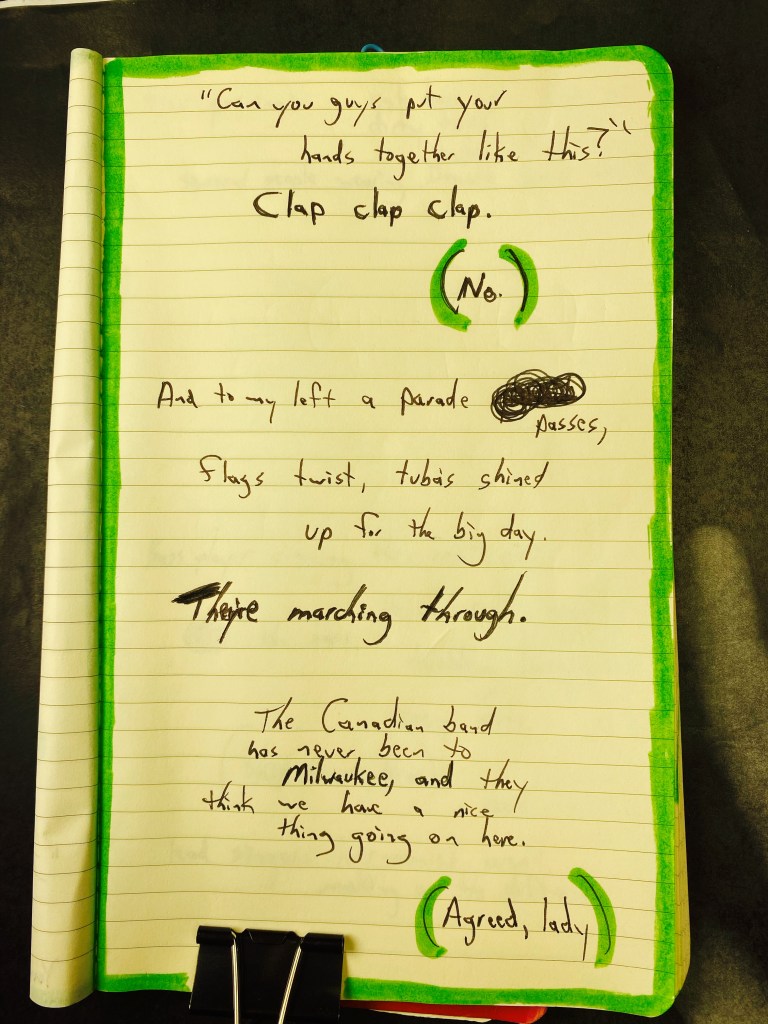 "Can you guys put your
hands together like this?"
Clap clap clap.
(No.)
And to my left a parade
passses,
flags twist, tubas shined
up for the big day.
They're marching through.
The Canadian band
has never been to
Milwaukee, and they
think we have a nice
thing going on here.
(Agreed, lady)